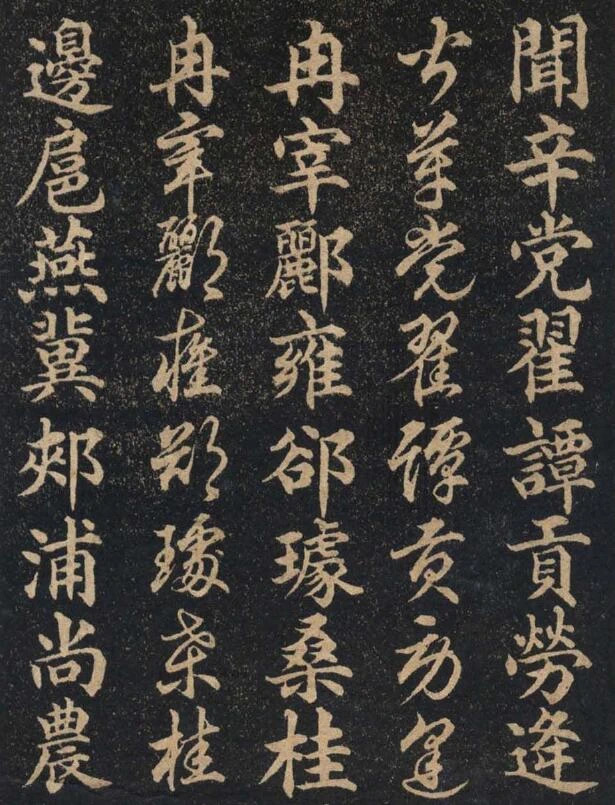 聞辛党翟譚貢勞逄
聞辛党翟譚貢勞逄
冉宰酈雍郤璩桑桂
冉宰酈雍郤璩桑桂
邊扈燕冀郟浦尚農